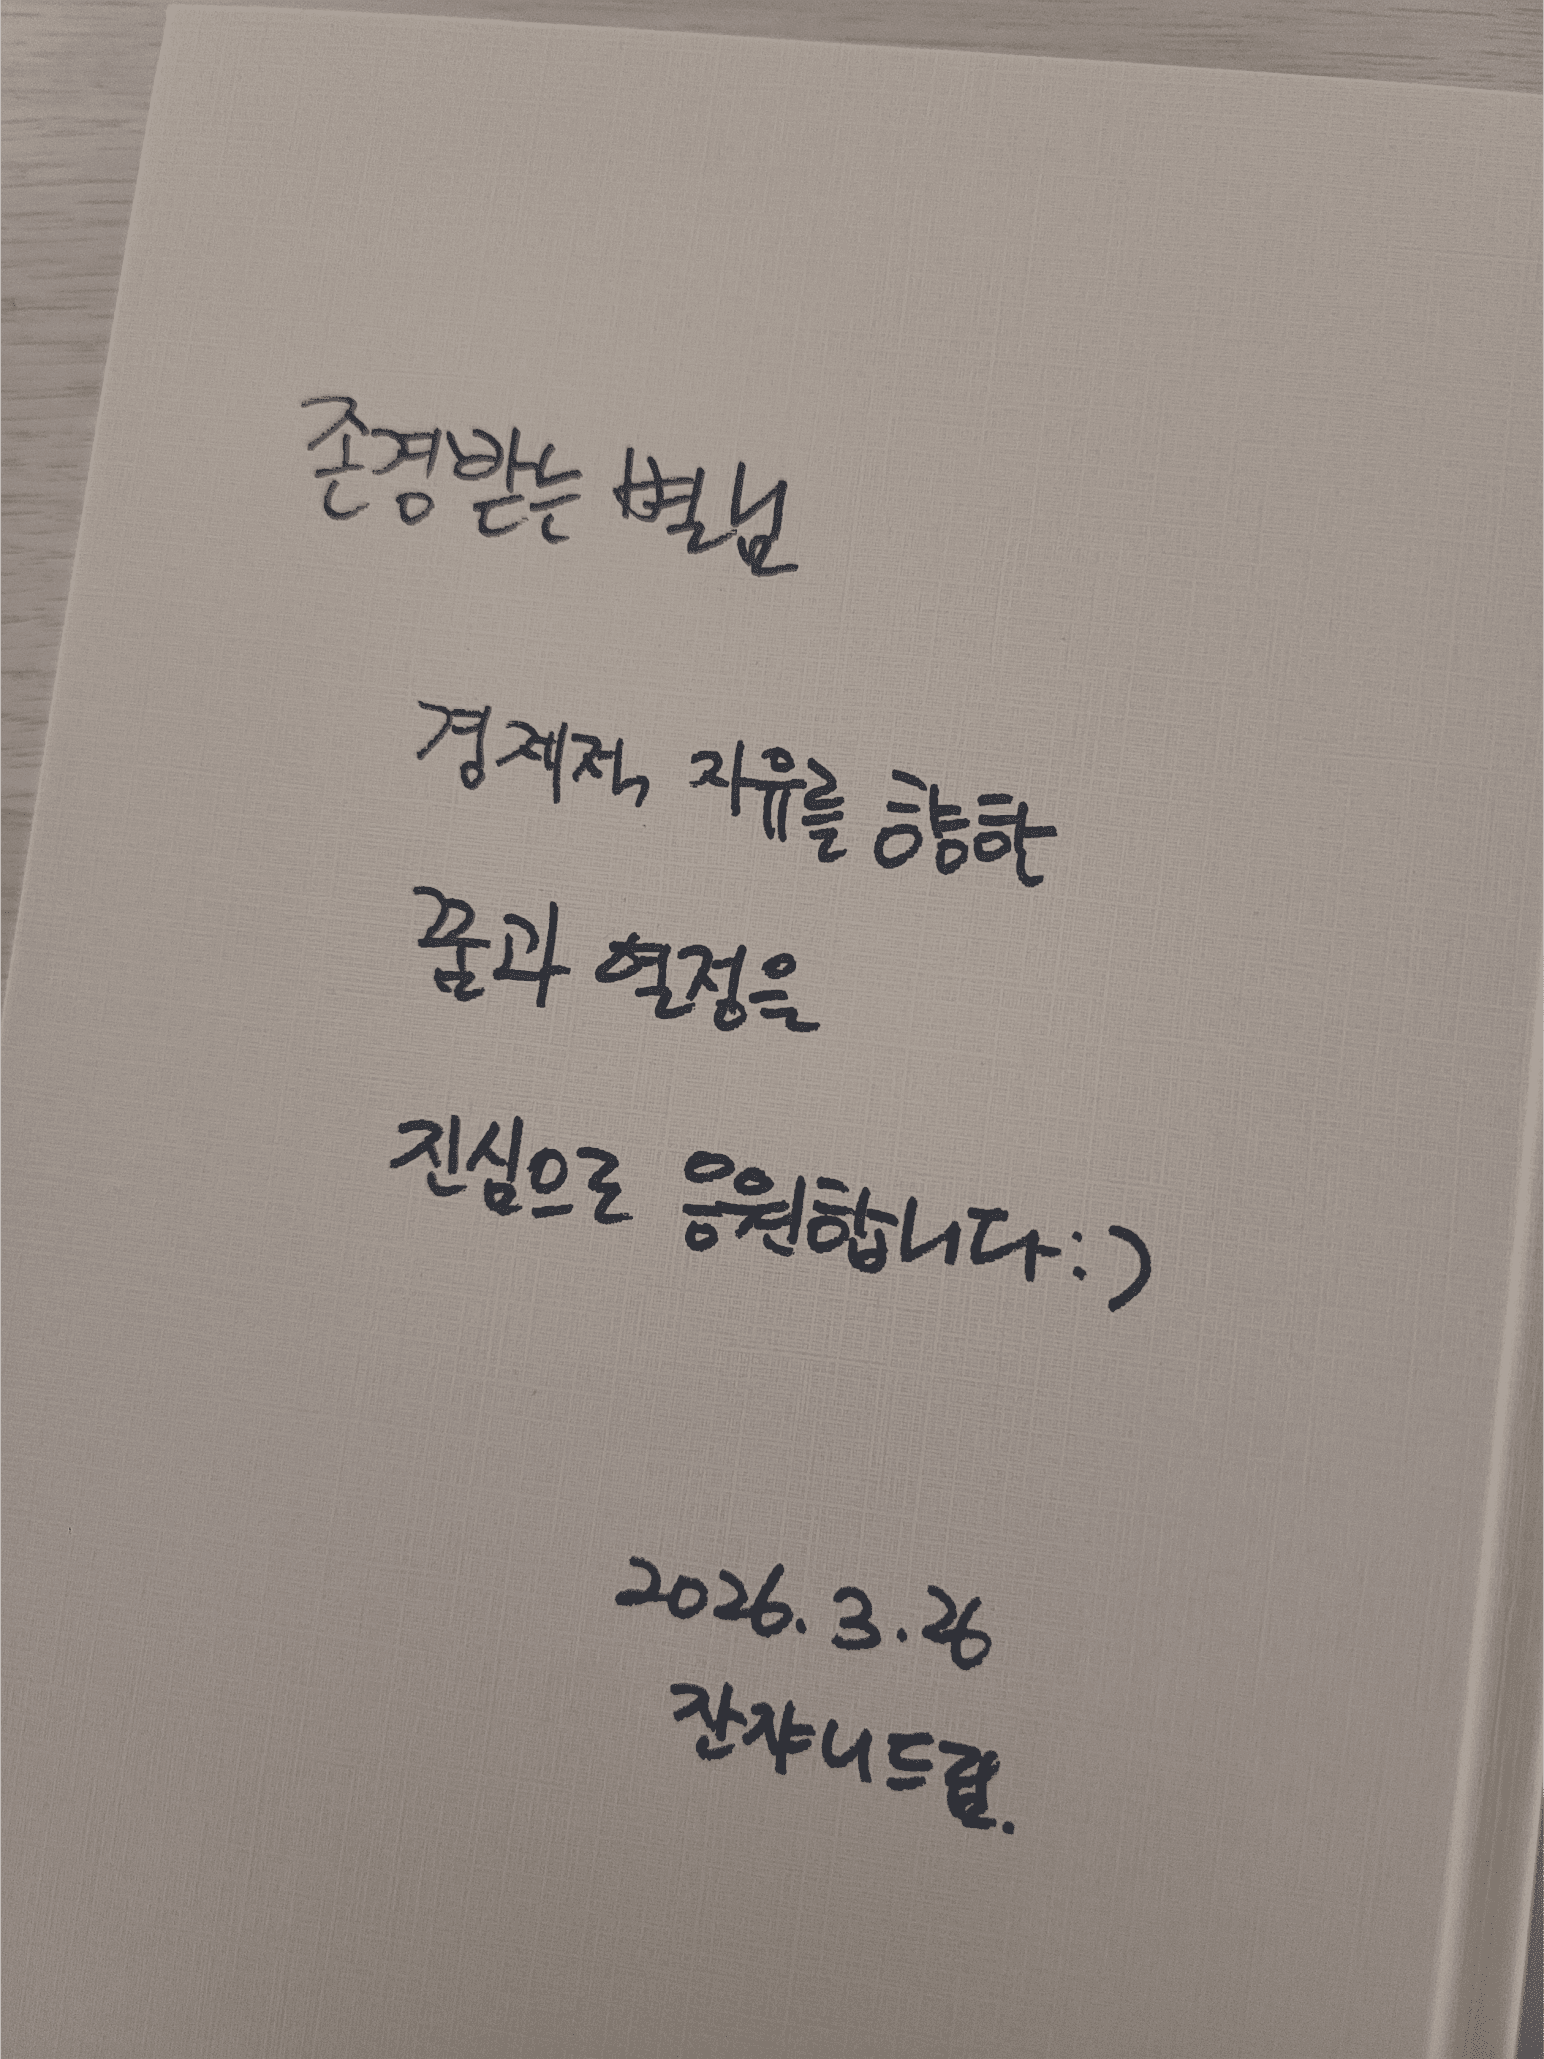 존경받는 별님
경제적 자유를 향한
꿈과 열정을
진심으로 응원합니다:)
2026. 3. 26
잔쟈니드림.